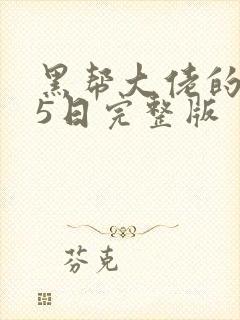 黑帮大佬的
5日完整版
芬克